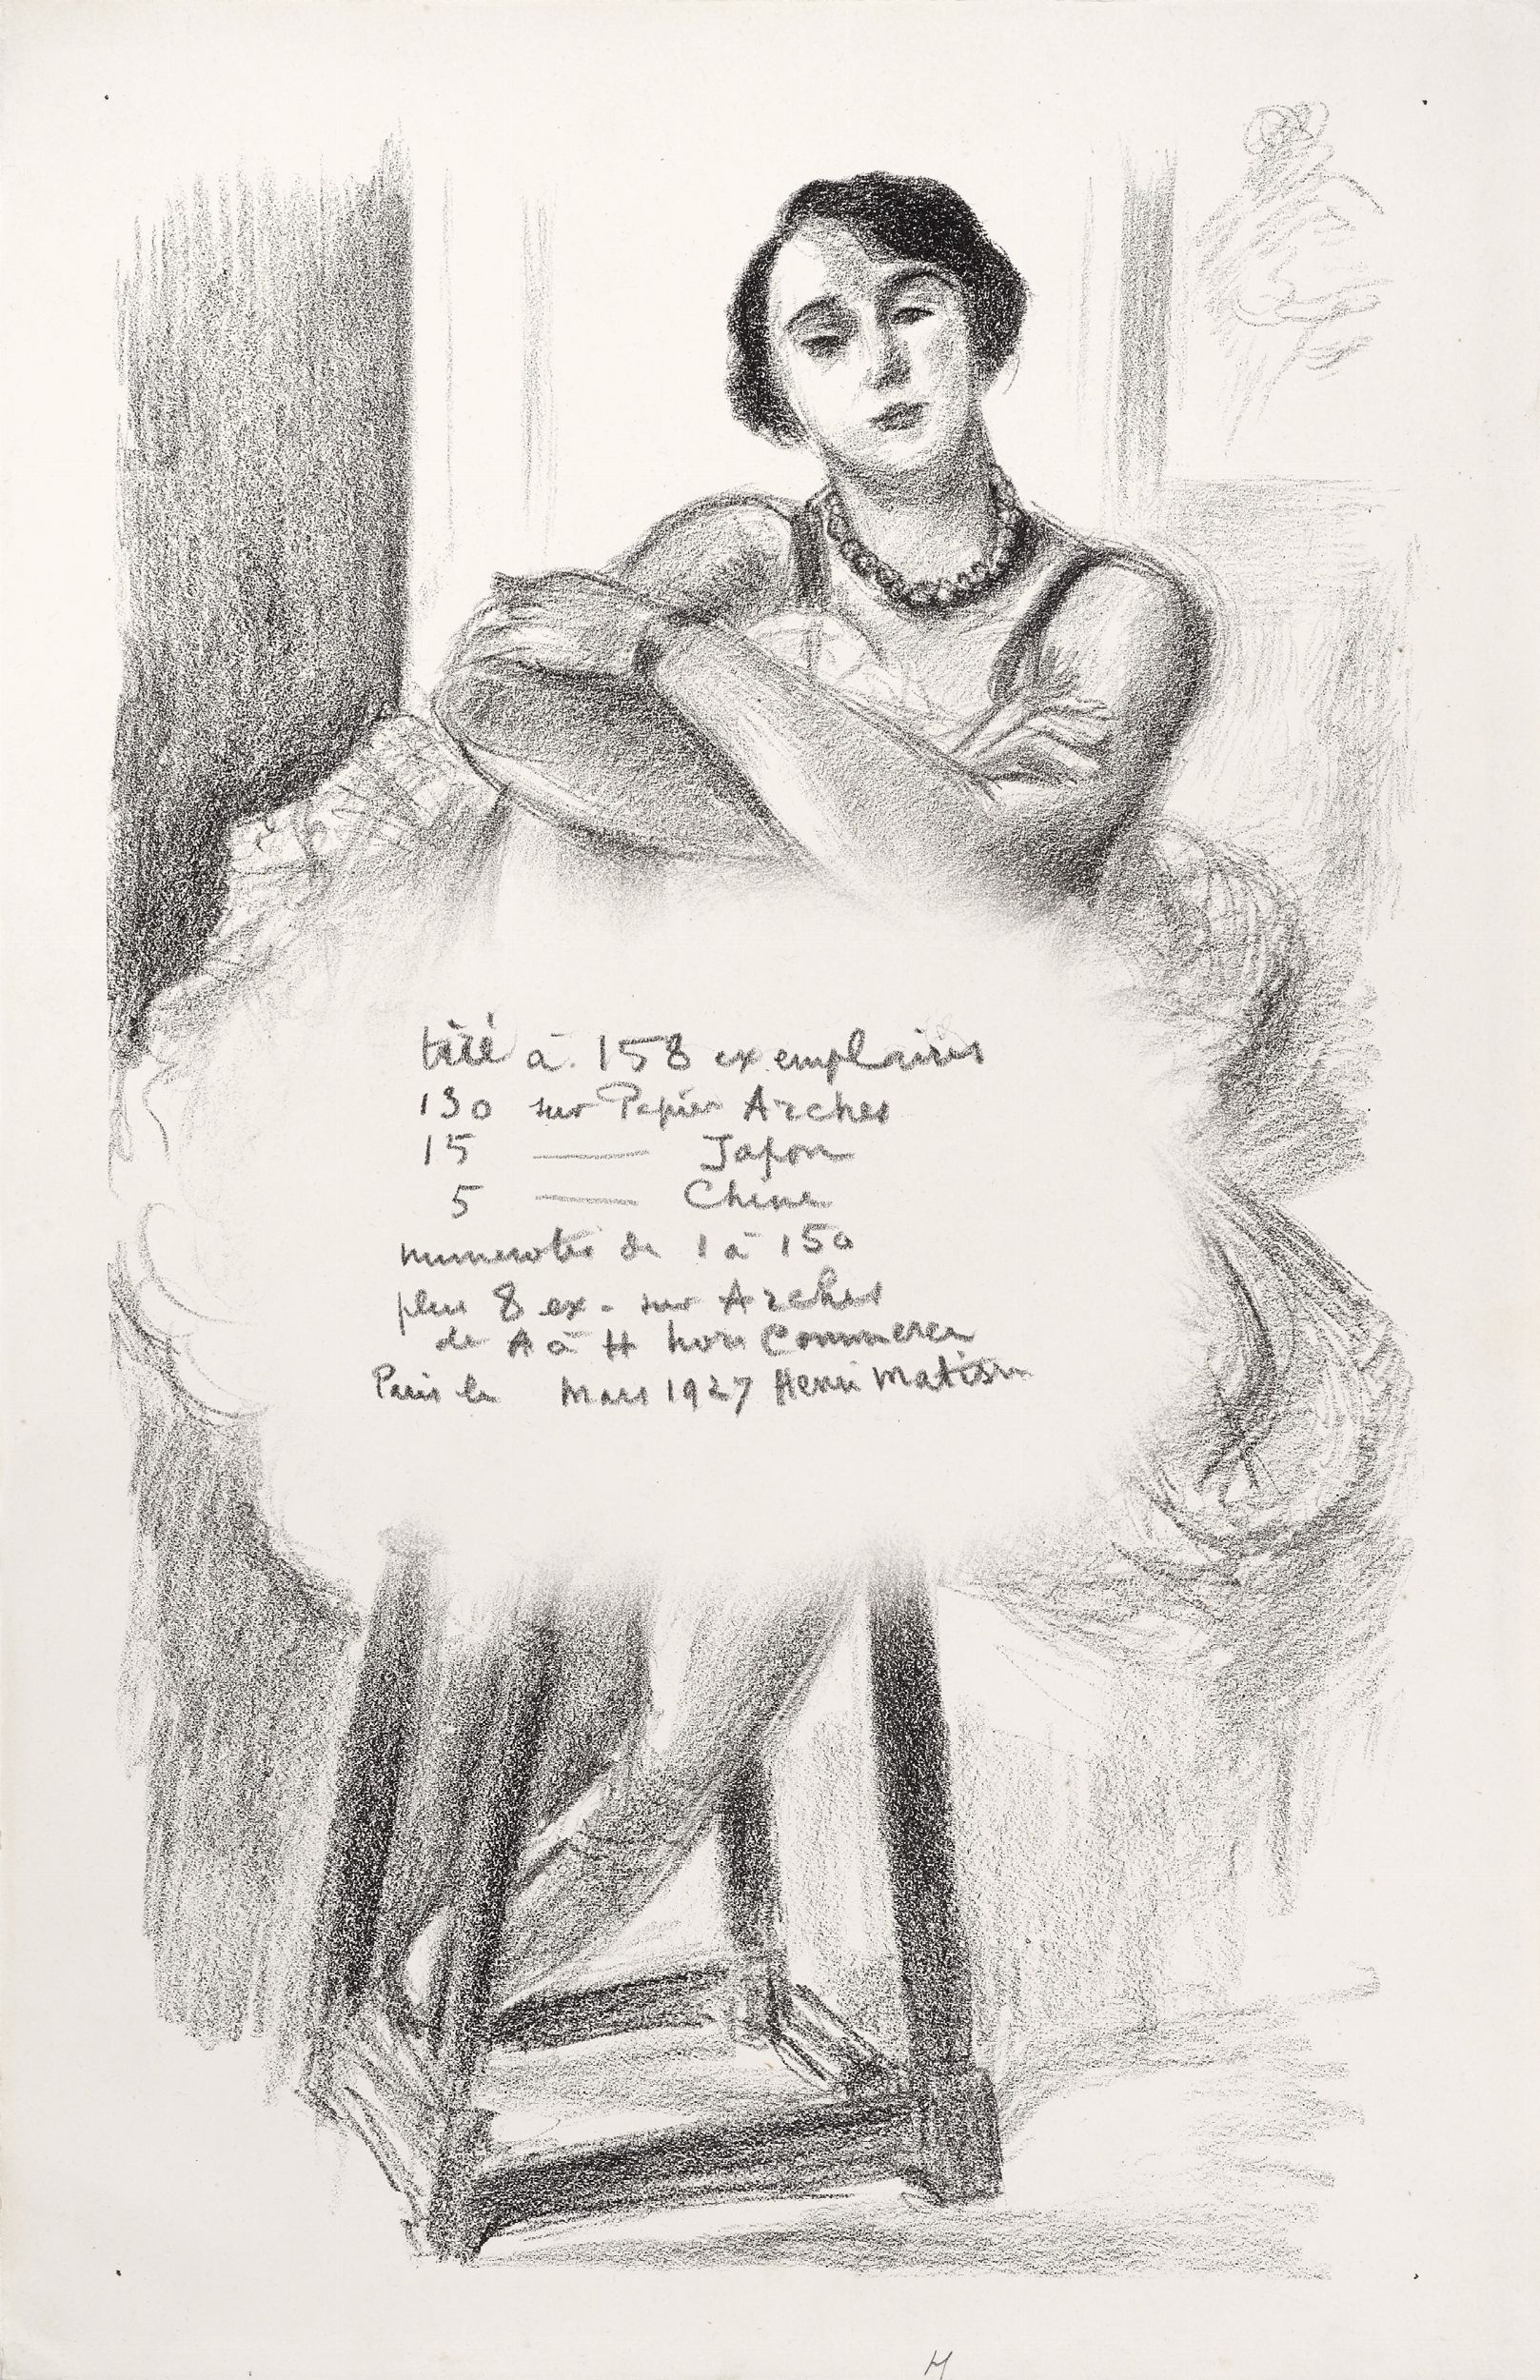 tiré à 158 exemplaires
130 sur Papier Arches
15 — Japon
5 — Chine
numerotés de 1 à 150
plus 8 ex. sur Arches
de A à H hors Commerce
Paris le Mars 1927 Henri Matisse
H